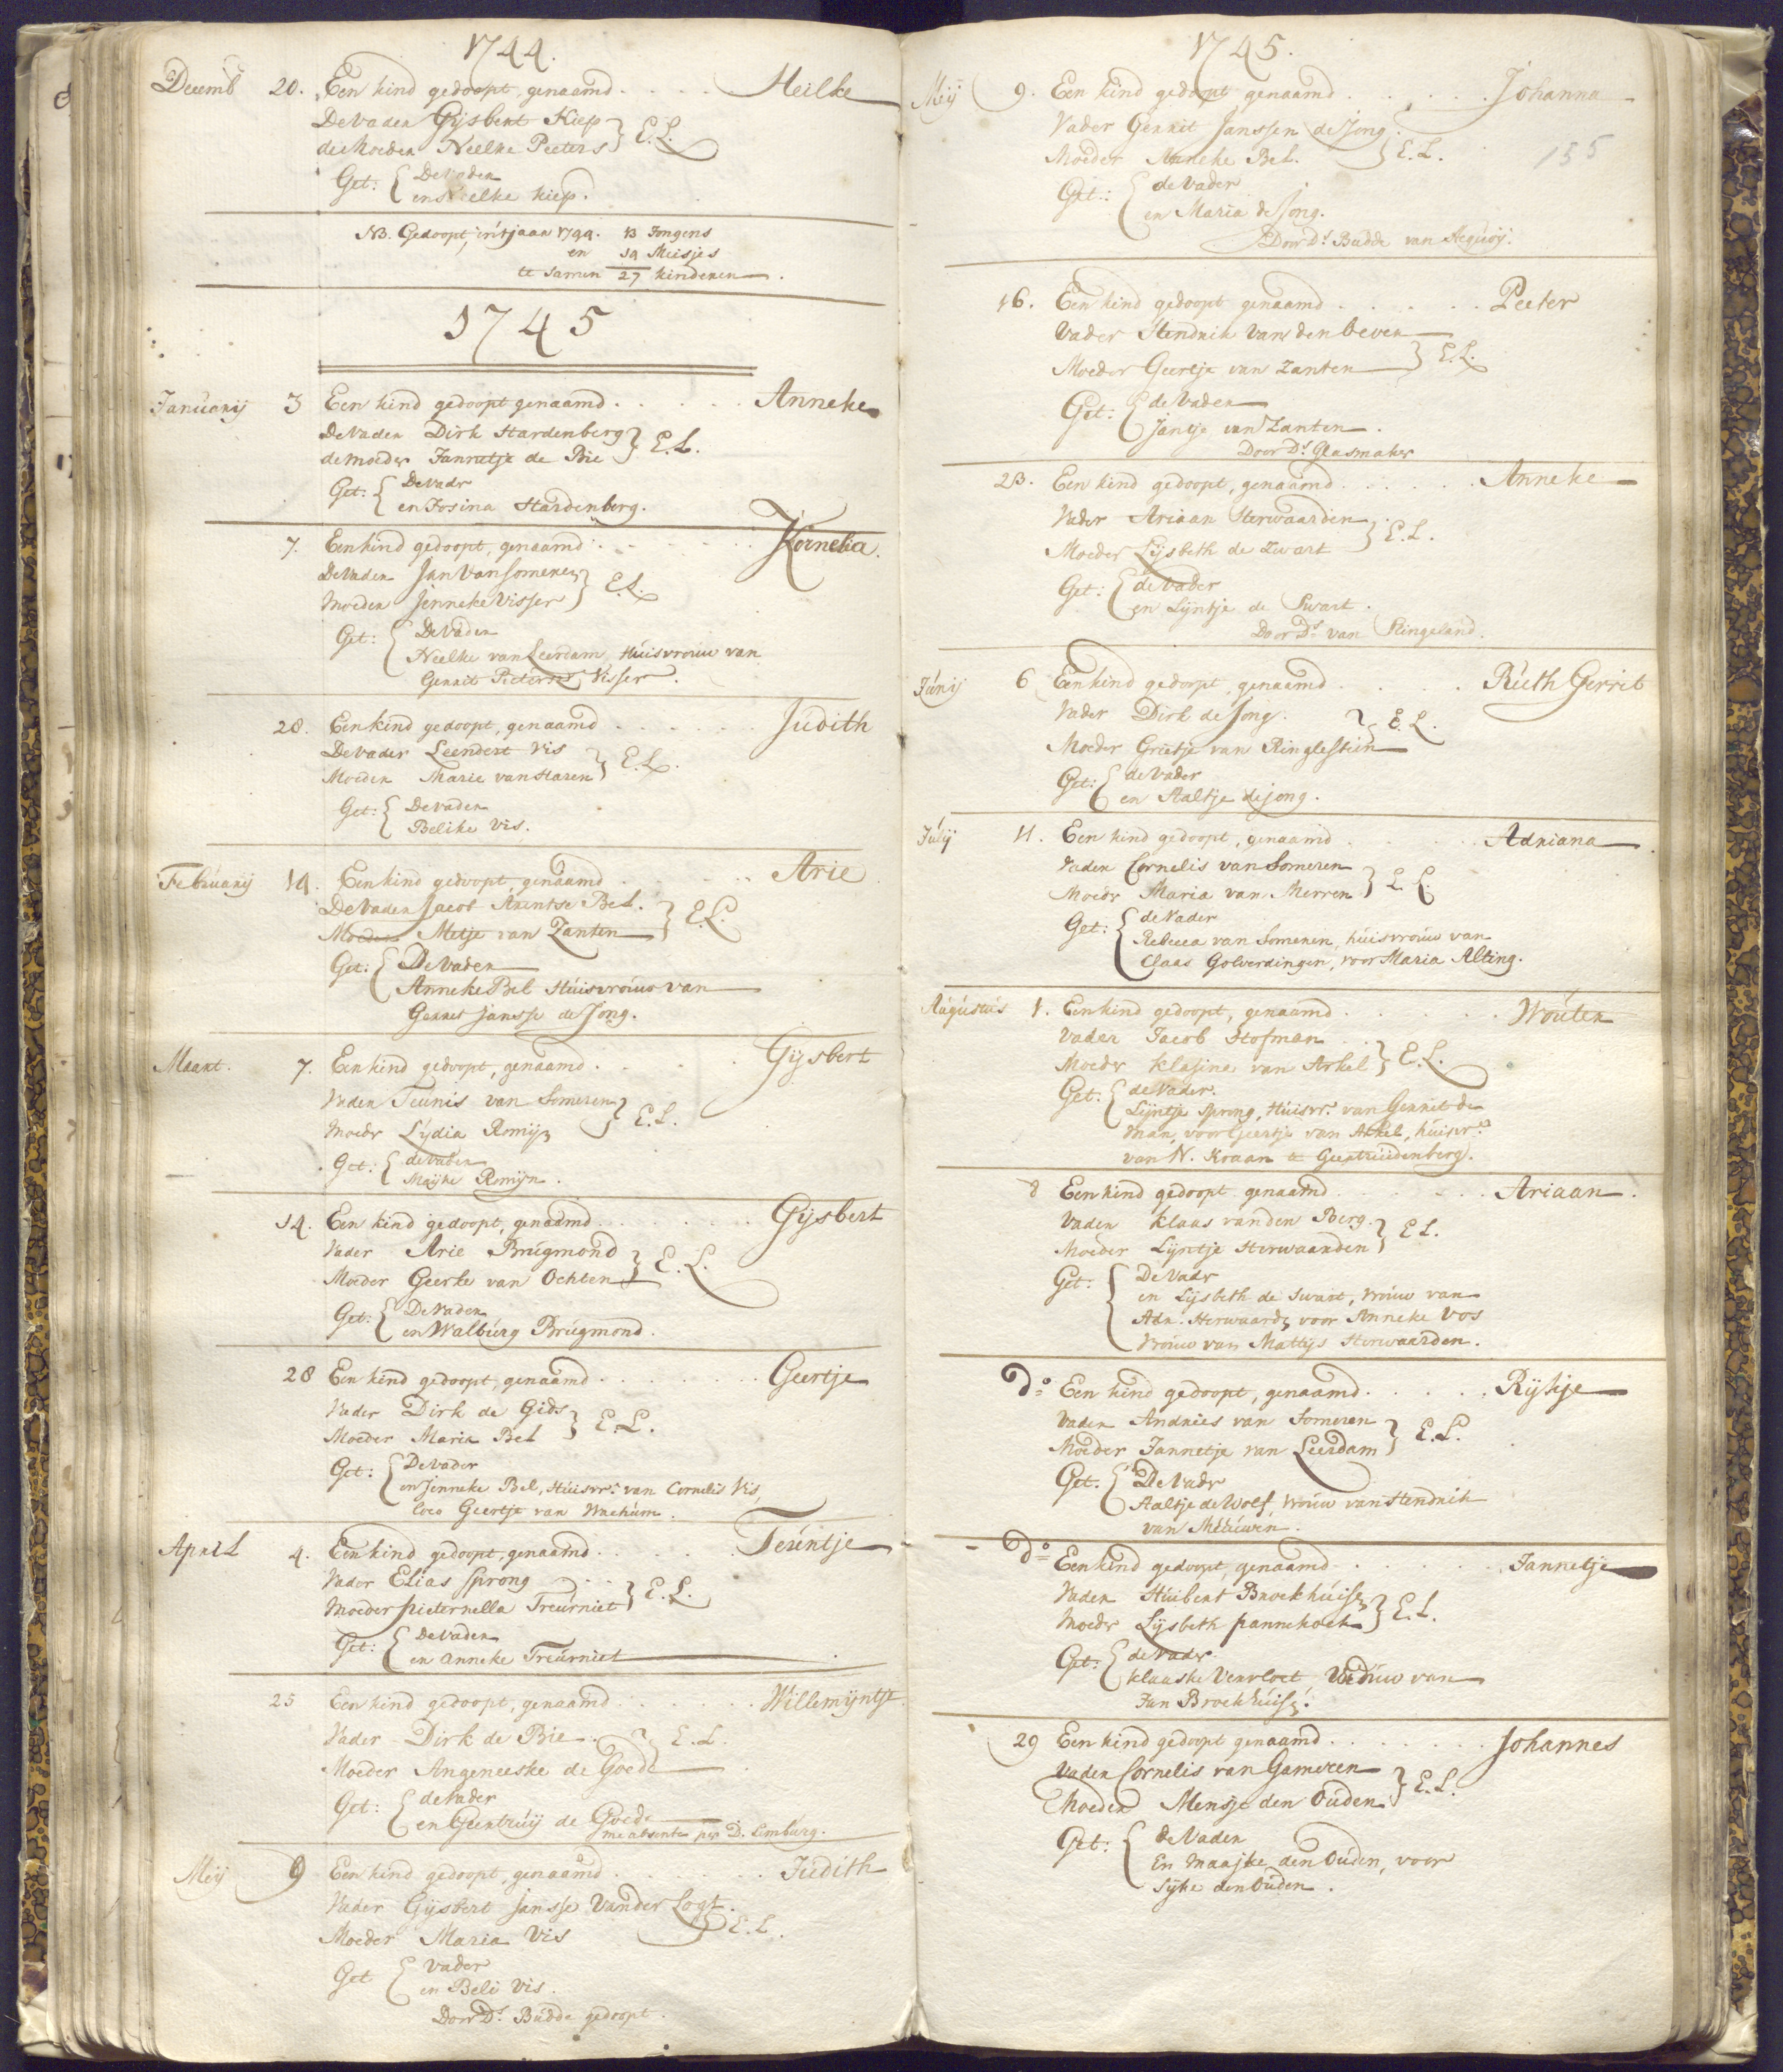 1744.
Decemb 20. Een kind gedoopt, genaamd . . . . . Heilke
De Vader Gijsbert Kiep } E. L.
de Moeder Neelke Peeters
Get: { De Vader
en Heilke Kiep.
NB. Gedoopt, in't jaar 1744. 13 Jongens
en 14 Meisjes
te samen 27 kinderen.
1745
Januarij 3 Een kind gedoopt genaamd . . . . . Anneke
De Vader Dirk Hardenberg } E. L.
de moeder Jannetje de Bie
Get: { De Vadr
en Josina Hardenberg.
7. Een kind gedoopt, genaamd . . . . . Kornelia.
De Vader Jan Van Someren } E. L.
Moeder Jenneke Visser
Get: { De Vader
Neelke van Leerdam, Huisvrouw van
Gerrit Pieterse Visser.
28. Een kind gedoopt, genaamd . . . . . Judith
De Vader Leendert Vis } E. L.
Moeder Marie van Haren
Get: { De vader
Belike Vis.
Februarij 14. Een kind gedoopt, genaamd . . . . . Arie
De Vader Jacob Arentse Bel. } E. L.
Moeder Metje van Zanten
Get: { De Vader
Anneke Bel Huisvrouw van
Gerret Jansse de Jong.
Maart. 7. Een kind gedoopt, genaamd . . . . Gijsbert
Vader Teunis van Someren } E. L.
Moedr Lydia Romijn
Get: { de vader
Maijke Romijn.
14. Een kind gedoopt, genaamd . . . . . Gijsbert
Vader Arie Brugmond } E. L.
Moeder Geerke van Ochten
Get: { De Vader
en Walburg Brugmond.
28 Een kind gedoopt, genaamd . . . . . Geertje
Vader Dirk de Gids } E. L.
Moeder Maria Bel
Get: { De Vader
en Jenneke Bel, Huisvr: van Cornelis Vis,
loco Geertje van Wachum.
April 4. Een kind gedoopt, genaamd . . . . . Teuntje
Vader Elias Sprong } E. L.
Moeder Pieternella Treurniet
Get: { De Vader
en Anneke Treurniet
25 Een kind gedoopt, genaamd . . . . . Willemijntje
Vader Dirk de Bie } E. L.
Moeder Angeneeske de Goede
Get: { de Vader
en Geertruij de Goede
me absente per D. Limburg.
Meij 9 Een kind gedoopt, genaamd . . . . . Judith
Vader Gijsbert Jansse Vander Logt. } E. L.
Moeder Maria Vis
Get { Vader
en Beli Vis.
Door Ds. Budde gedoopt.
1745.
Meij 9. Een kind gedoopt genaamd . . . . . Johanna
Vader Gerrit Janssen de Jong } E. L.
Moeder Anneke Bel.
155
Get: { de Vader
en Maria de Jong.
Door Ds. Budde van Acquoij.
16. Een kind gedoopt genaamd . . . . . Peeter
Vader Hendrik van den Oever } E. L.
Moeder Geertje van Zanten
Get: { de Vader
Jantje van Zanten.
Door Ds. Glasmaker
23. Een kind gedoopt, genaamd . . . . . Anneke
Vader Ariaan Herwaarden } E. L.
Moeder Lijsbeth de Zwart
Get: { de Vader
en Lijntje de Swart.
Door Ds. van Ringeland.
Junij 6 Een kind gedoopt, genaamd . . . . . Ruth Gerrit
Vader Dirk de Jong. } E. L.
Moeder Grietje van Ringlestein
Get: { de Vader
en Aaltje de jong.
Julij 11. Een kind gedoopt, genaamd . . . . . Adriana
Vader Cornelis van Someren } E. L.
Moedr Maria van Merren
Get: { de Vader
Rebecca van Someren, huisvrouw van
Claas Golverdingen, voor Maria Alting.
Augustus 1. Een kind gedoopt, genaamd . . . . . Wouter
Vader Jacob Hofman } E. L.
Moedr Klasina van Arkel
Get: { de Vader.
Lijntje Sprong, Huisvr. van Gerrit de
Man, voor Geertje van Arkel, huisvr.
van N. Kraan te Geertruidenberg.
8 Een kind gedoopt genaamd . . . . . Ariaan.
Vader Klaas van den Berg } E L.
Moeder Lijntje Herwaarden
Get: { De Vadr
en Lijsbeth de Swart, vrouw van
Adr. Herwaarde, voor Anneke Vos
Vrouw van Mattijs Herwaarden.
do. Een kind gedoopt, genaamd . . . . . Rijkje
Vader Andries van Someren } E. L.
Moeder Jannetje van Leerdam
Get. { De Vadr
Aaltje de Wolf vrouw van Hendrik
van Meeuwen.
do. Een kind gedoopt, genaamd . . . . . Jannetje
Vader Huibert Broekhuise } E. L.
Moedr Lijsbeth Pannekoek
Get: { de Vadr
Klaaske Vervloet Weduw van
Jan Broekhuise.
29 Een kind gedoopt genaamd . . . . . Johannes
Vader Cornelis van Gameren } E. L.
Moeder Mensje den Ouden
Get: { de Vader
En Maajke den Ouden, voor
Sijke den Ouden.